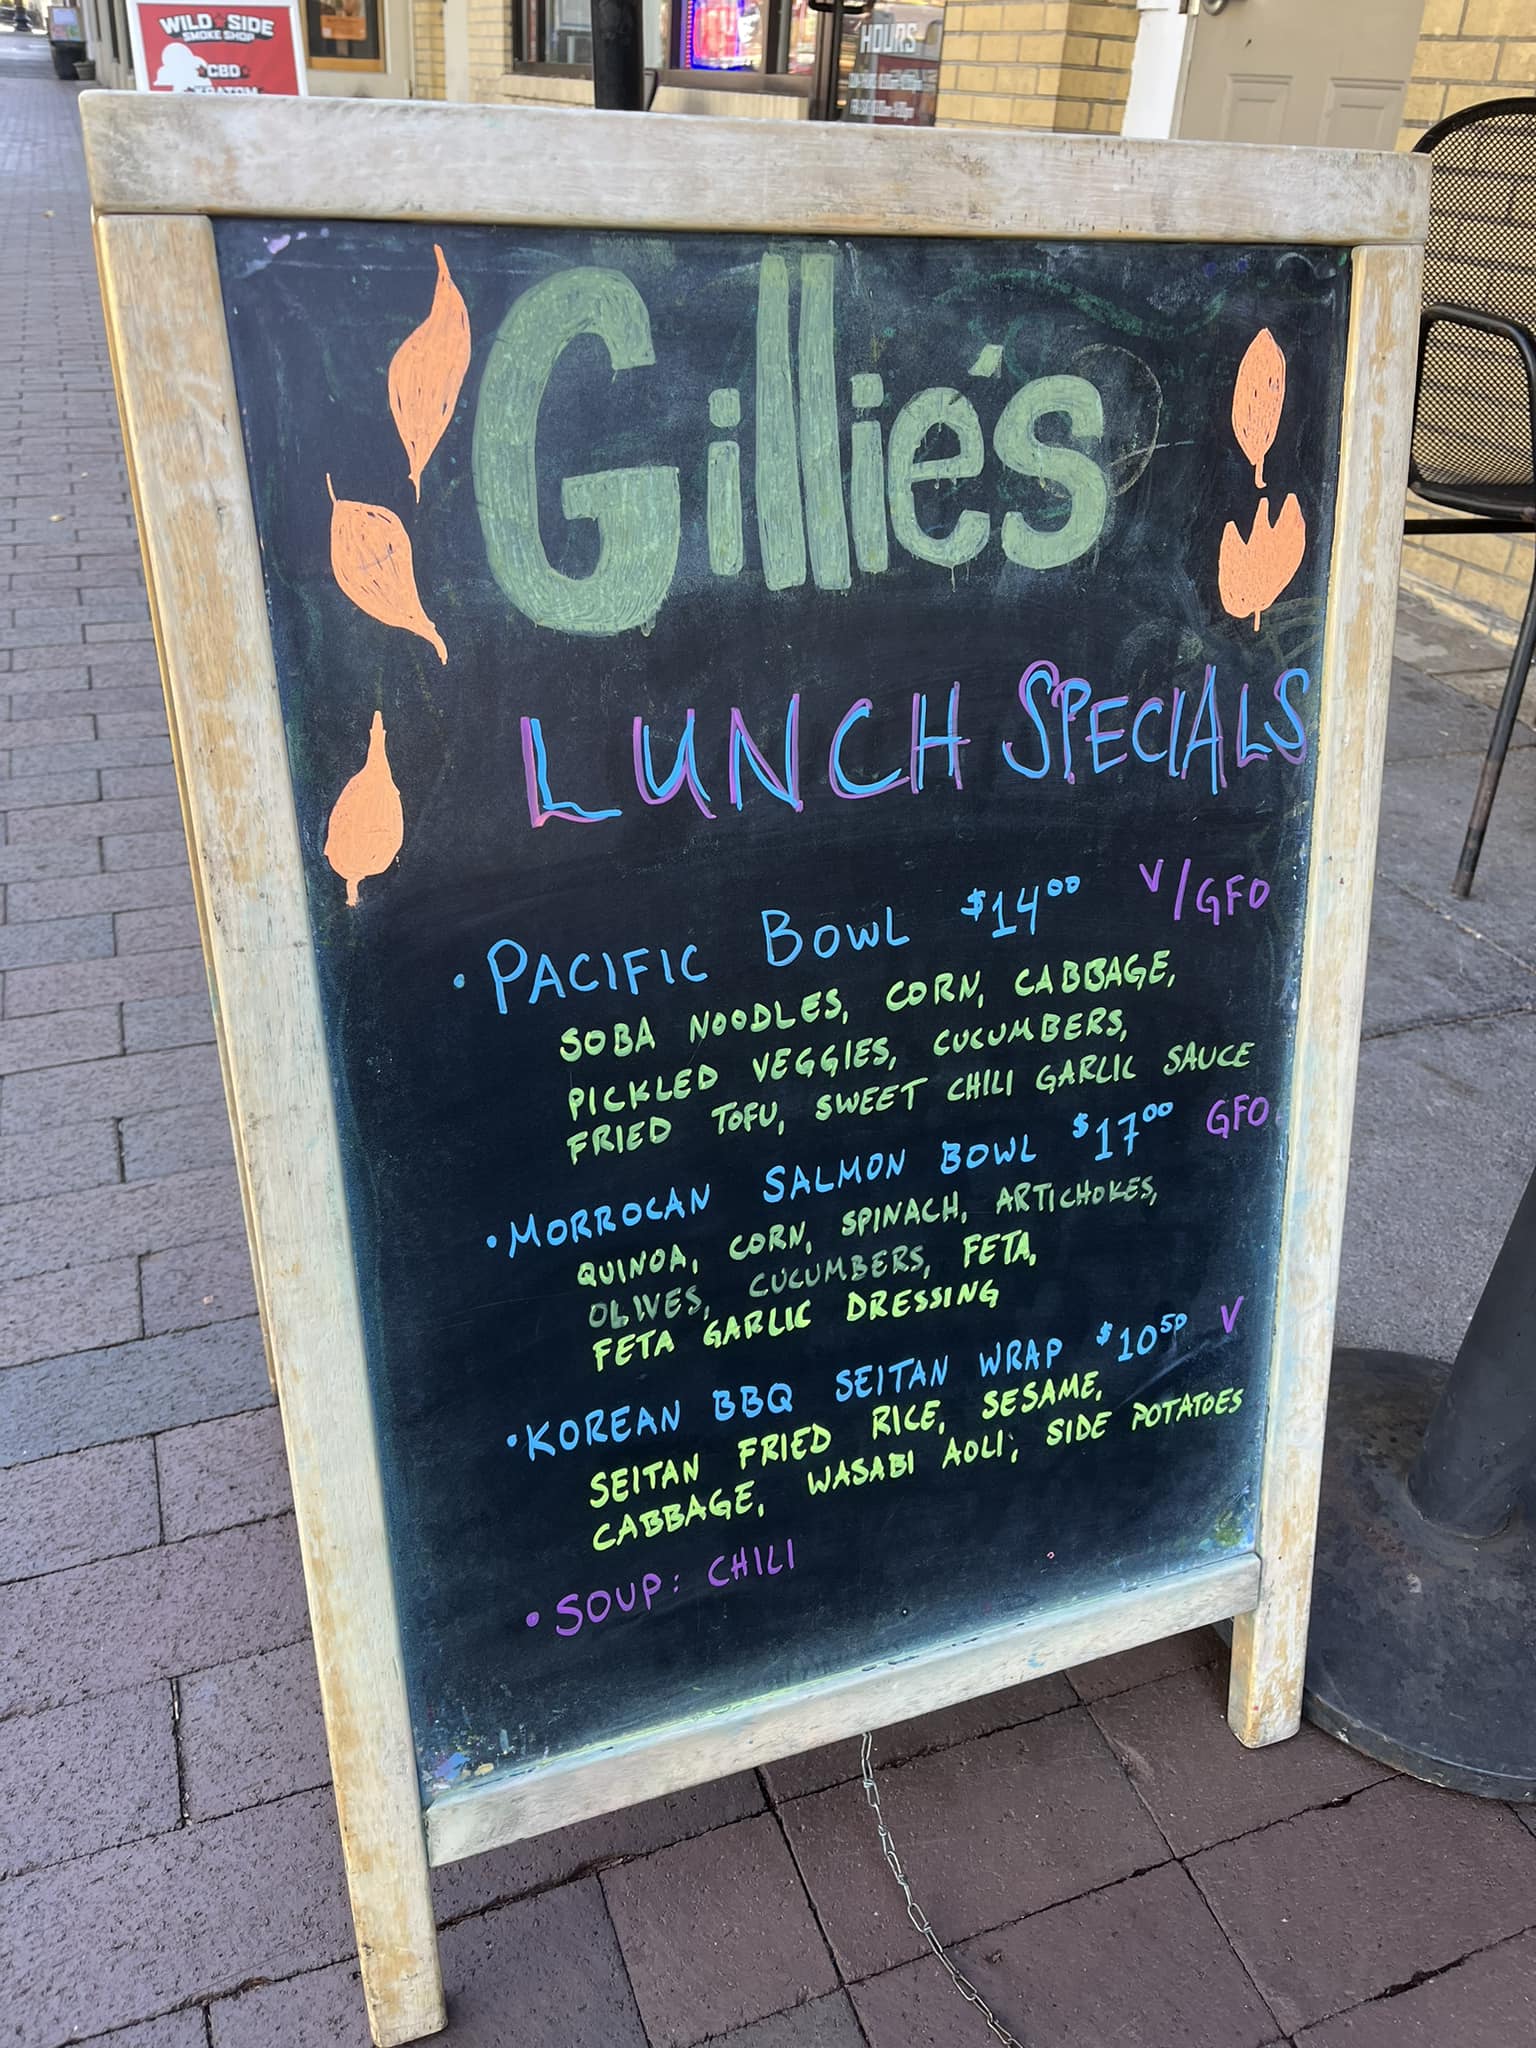 WILD SIDE
SMOKE SHOP
CBD
KRATOM
HOURS
Gillie's
LUNCH SPECIALS
• PACIFIC BOWL $14⁰⁰ V/GFO
SOBA NOODLES, CORN, CABBAGE,
PICKLED VEGGIES, CUCUMBERS,
FRIED TOFU, SWEET CHILI GARLIC SAUCE
• MORROCAN SALMON BOWL $17⁰⁰ GFO
QUINOA, CORN, SPINACH, ARTICHOKES,
OLIVES, CUCUMBERS, FETA,
FETA GARLIC DRESSING
• KOREAN BBQ SEITAN WRAP $10⁵⁰ V
SEITAN FRIED RICE, SESAME,
CABBAGE, WASABI AOLI, SIDE POTATOES
• SOUP: CHILI